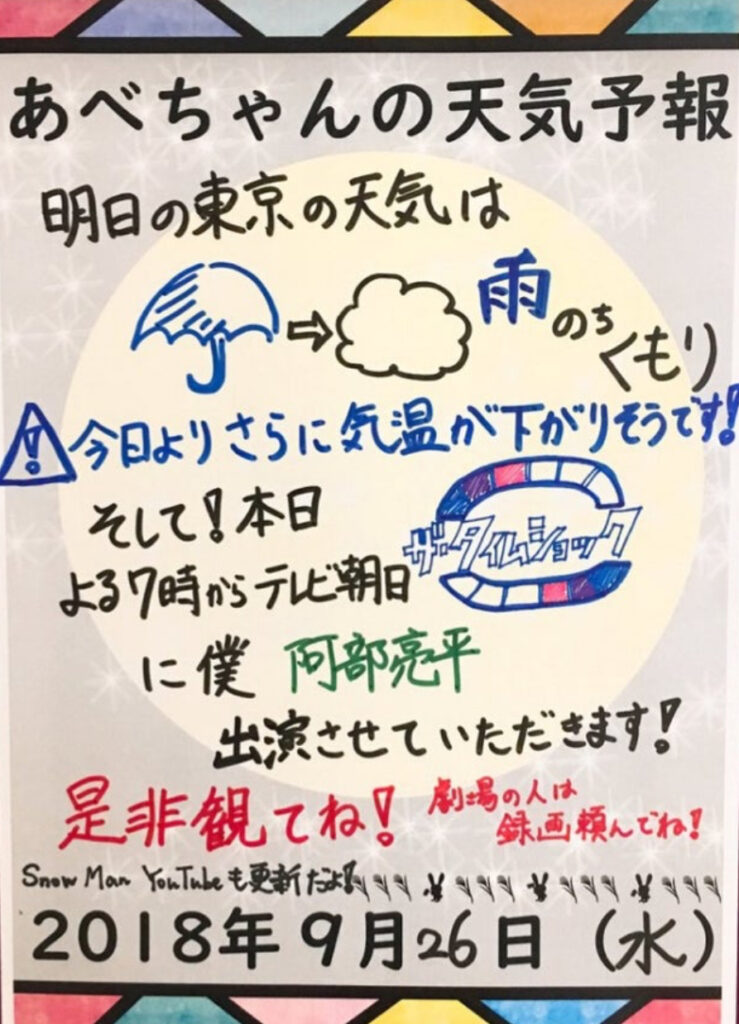 あべちゃんの天気予報
明日の東京の天気は
雨のちくもり
今日よりさらに気温が下がりそうです!
そして!本日
ザ・タイムショック
よる7時からテレビ朝日
に僕 阿部亮平
出演させていただきます!
是非観てね!
劇場の人は
録画頼んでね!
Snow Man YouTubeも更新だよ!
2018年9月26日(水)